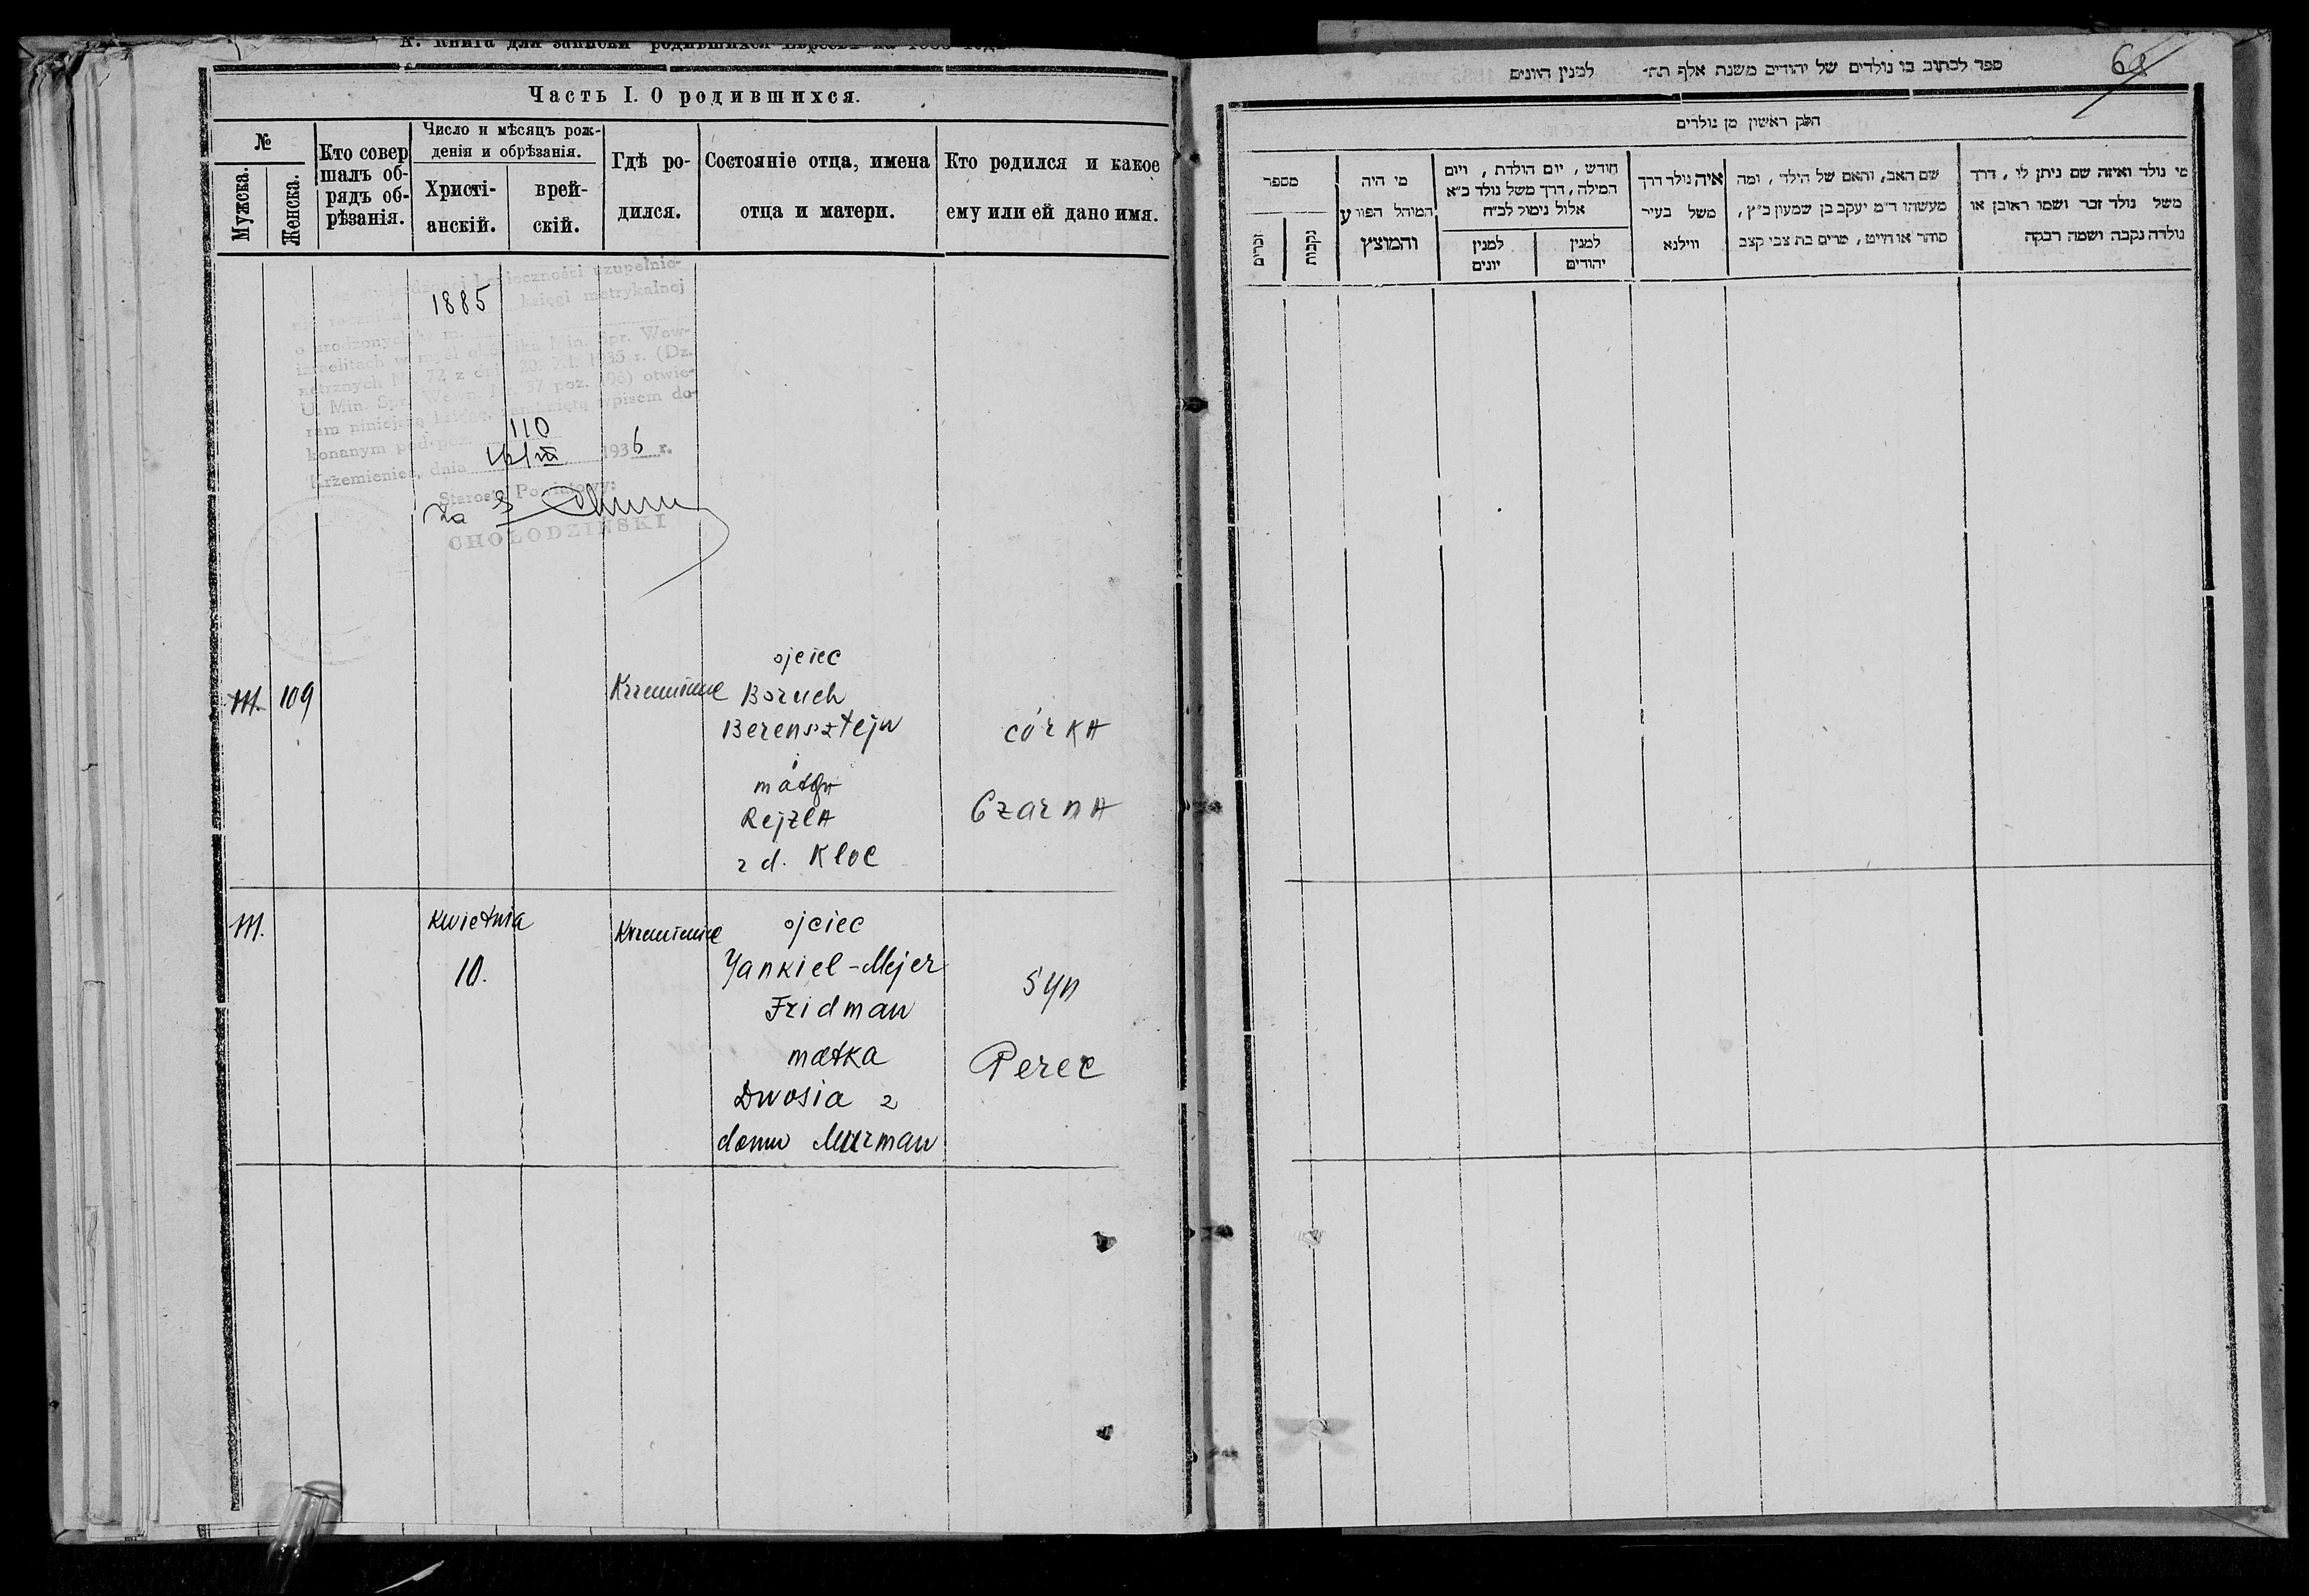 А. Книга для записки родившихся Евреевъ на 188 годъ
Часть I. О родившихся.
№
Мужска.
Женска.
Кто совер
шалъ об-
рядъ об-
рѣзанія.
Число и мѣсяцъ рож-
денія и обрѣзанія.
Христі-
анскій.
врей-
скій.
Гдѣ ро-
дился.
Состояніе отца, имена
отца и матери.
Кто родился и какое
ему или ей дано имя.
konieczności uzupełnie-
1885
księgi metrykalnej
o urodzonych w m.
izraelitach w myśl okólnika Min. Spr. Wew-
nętrznych Nr. 72 z dnia 20. XI. 1935 r. (Dz.
U. Min. Spr. Wewn. Nr. 37 poz. 196) otwie-
ram niniejszą księgę, zamkniętą wpisem do-
konanym pod poz. 110
Krzemieniec, dnia III 1936 r.
Starosta Powiatowy:
za
CHOŁODZIŃSKI
M. 109
Krzemieniec
ojciec
Boruch
Berensztejn
i
matka
Rejzla
z d. Kloc
córka
Czarna
M.
Kwietnia
10.
Krzemieniec
ojciec
Yankiel-Mejer
Fridman
matka
Dwosia z
domu Murman
syn
Perec
ספר לכתוב בו נולדים של יהודים משנת אלף תת־ למנין היונים
68
חלק ראשון מן נולדים
מספר
זכרים
נקבות
מי היה
המוהל הפורע
והמוצץ
חודש, יום הולדת, ויום
המילה, דרך משל נולד כ״א
אלול נימול לכ״ח
למנין
יונים
למנין
יהודים
איה נולד דרך
משל בעיר
ווילנא
שם האב, והאם של הילד, ומה
מעשהו ד״מ יעקב בן שמעון כ״ץ,
סוחר או חייט, מרים בת צבי קצב
מי נולד ואיזה שם ניתן לו, דרך
משל נולד זכר ושמו ראובן או
נולדה נקבה ושמה רבקה